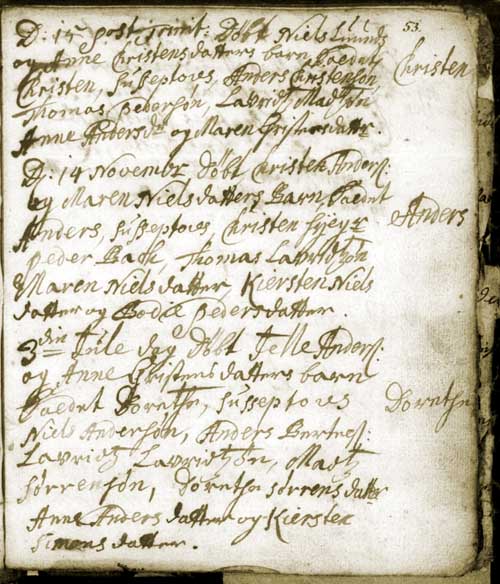 53.
D: 15 post Trinit: Døbt Niels
og Anne Christensdatters barn kaldet
Christen, Susseptores Anders Christensøn
Christen
Thomas Pedersøn, Lauridtz Madtzøn
Anne Andersdtr og Maren Christensdatter.
D: 14 Novembr Døbt Christen Anders:
og Maren Nielsdatters Barn, kaldet
Anders, Susseptores, Christen
Anders
Peder Back, Thomas Lauridtzøn
Maren Nielsdatter, Kiersten Niels
datter og Bodil Pedersdatter.
3die Jule dag Døbt Jelle Anders:
og Anne Christensdatters barn
kaldet Dorethe, Susseptores
Dorethe
Niels Andersøn, Anders Bertels:
Lauridtz Lauridtzøn, Madtz
Sørrensøn, Dorethe Sørrensdatter
Anne Andersdatter og Kiersten
Simonsdatter.